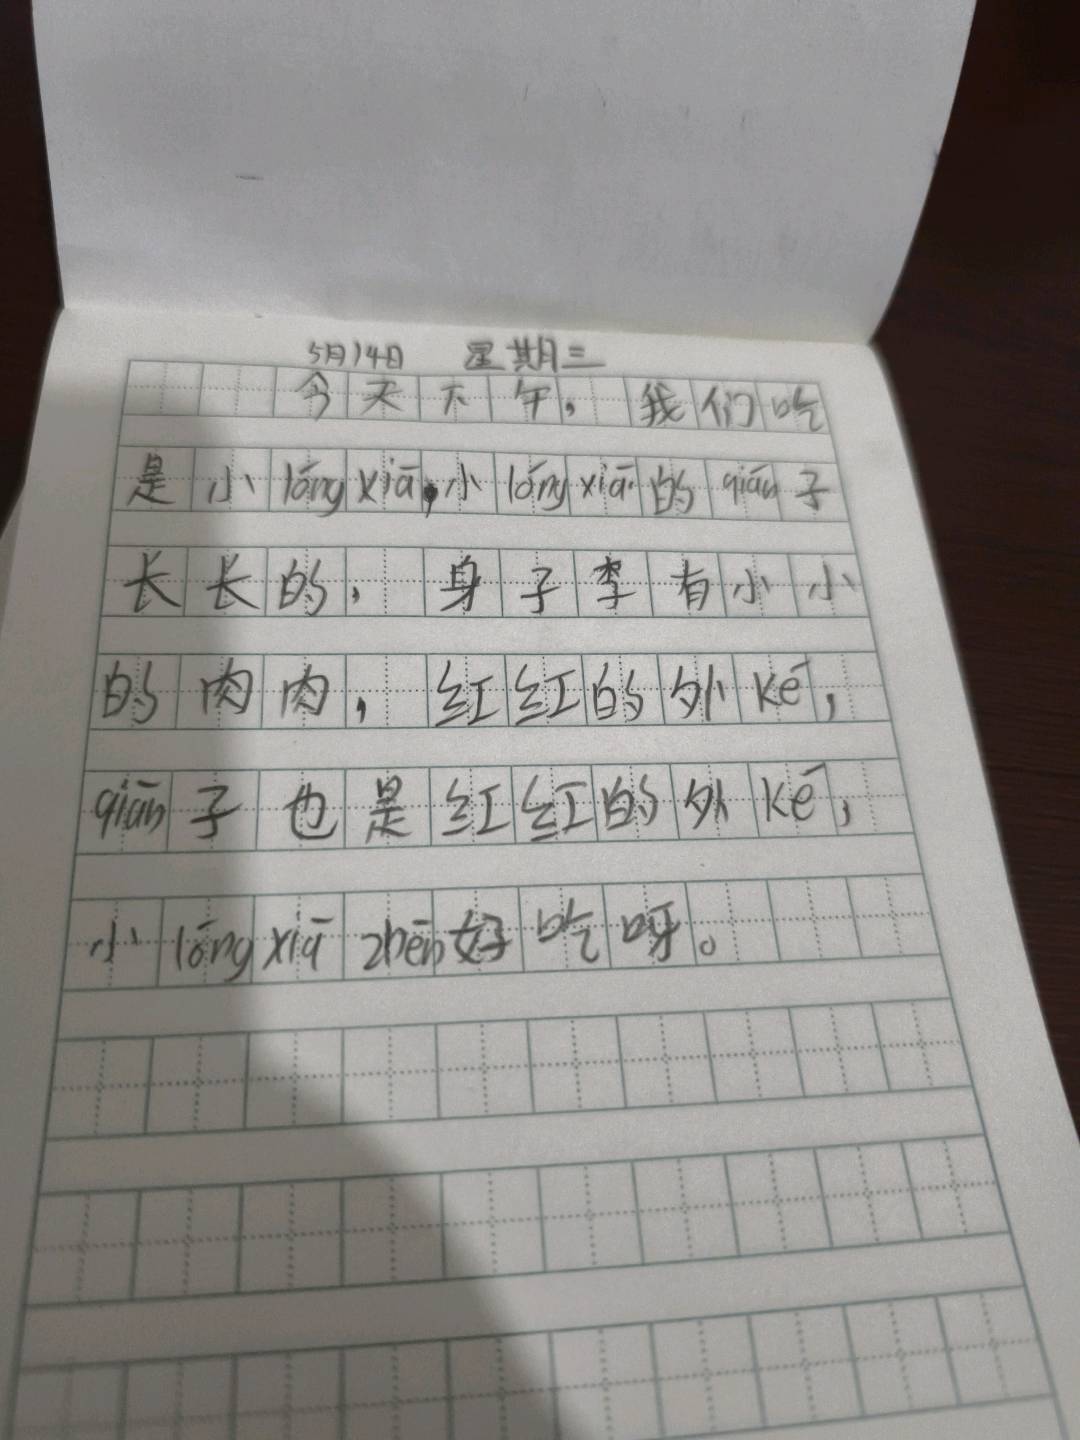 5月14日 星期三
今天下午,我们吃
是小lóngxiā,小lóngxiā的qián子
长长的,身子李有小小
的肉肉,红红的外ké,
qián子也是红红的外ké,
小lóngxiā zhēn好吃呀。